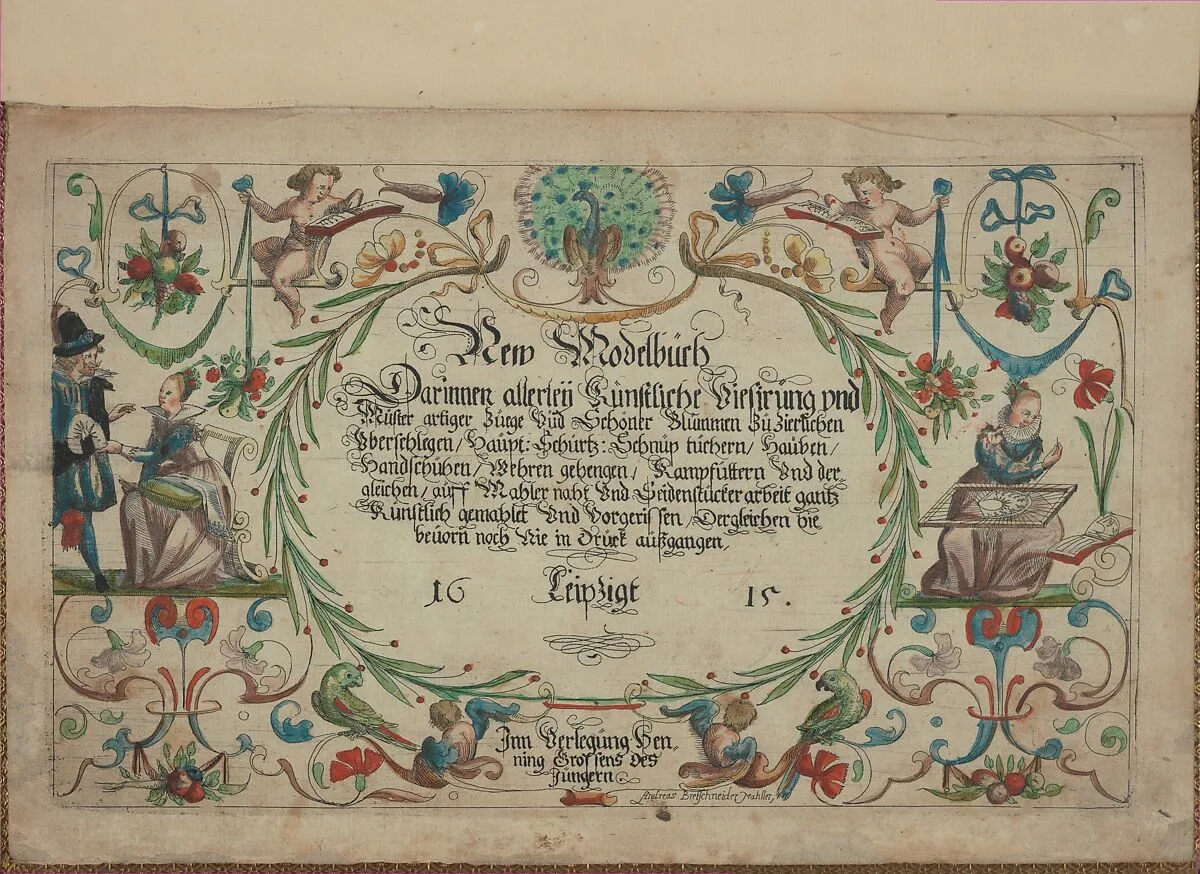 New Modelbüch
Darinnen allerleÿ Künstliche Viesirüng vnd
Müster artiger Züege Vnd Schöner Blümmen Zü Zierlichen
Vberschlegen / Haüpt: Schürtz: Schnüp tüchern / Haüben /
Handschühen / Wehren gehengen / Kampfüttern Vnd der
gleichen / aüff Mahler naht Vnd Seidenstücker arbeit gantz
Künstlich gemahlet Vnd Vorgerissen / Dergleichen hie
beuorn noch Nie in Drück außgangen,
16 Leipzigt 15.
Inn Verlegüng Hen„
ning Grossens des
Jüngern
Andreas Bretschneider Mahller